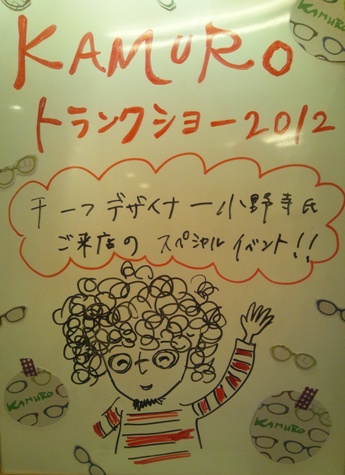 KAMURO
トランクショー2012
チーフデザイナー小野寺氏
ご来店の スペシャルイベント!!
KAMURO
KAMURO
KAMURO